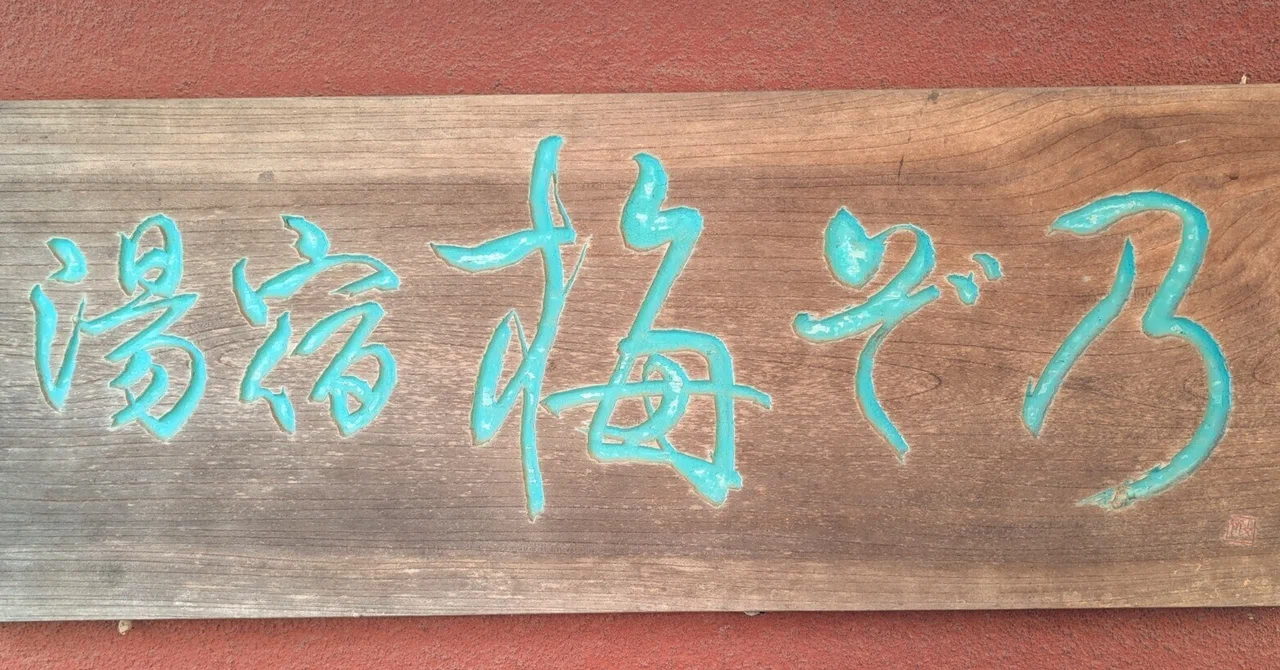 湯宿梅ぞ乃